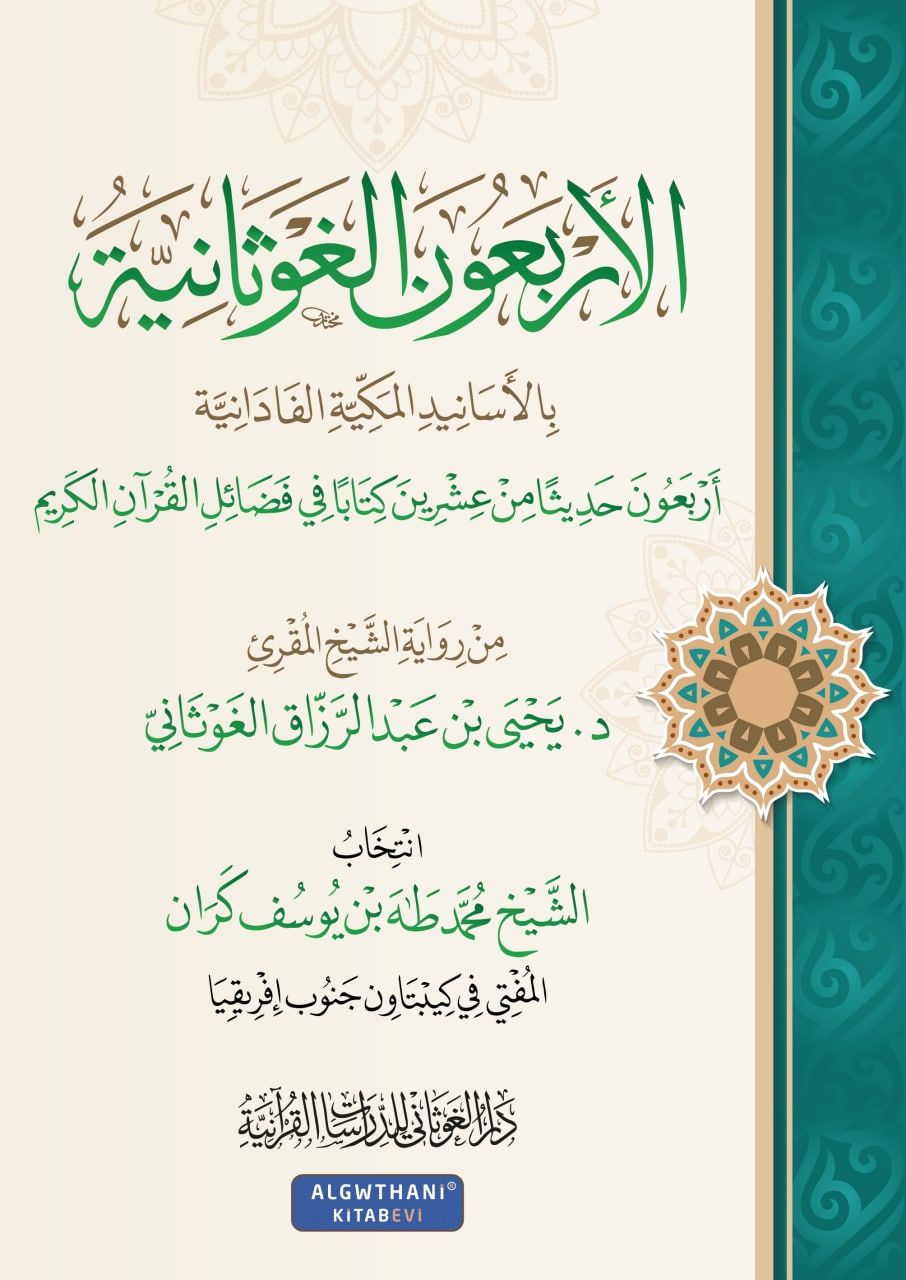 الأَرْبَعُونَ الغَوْثَانِيَّةُ
بِالأَسَانِيدِ المَكِّيَّةِ الفَادَانِيَّة
أَرْبَعُونَ حَدِيثًا مِنْ عِشْرِينَ كِتَابًا فِي فَضَائِلِ القُرْآنِ الكَرِيم
مِنْ رِوَايَةِ الشَّيْخِ المُقْرِئِ
د. يَحْيَى بْن عَبْد الرَّزَّاق الغَوْثَانِيّ
انْتِخَابُ
الشَّيْخ مُحَمَّد طَاهَ بْن يُوسُف كَرَان
المُفْتِي فِي كِيبْتَاوِن جَنُوب إِفْرِيقِيَا
دَارُ الغَوْثَانِي لِلدِّرَاسَاتِ القُرْآنِيَّةِ
ALGWTHANİ®
KİTABEVİ